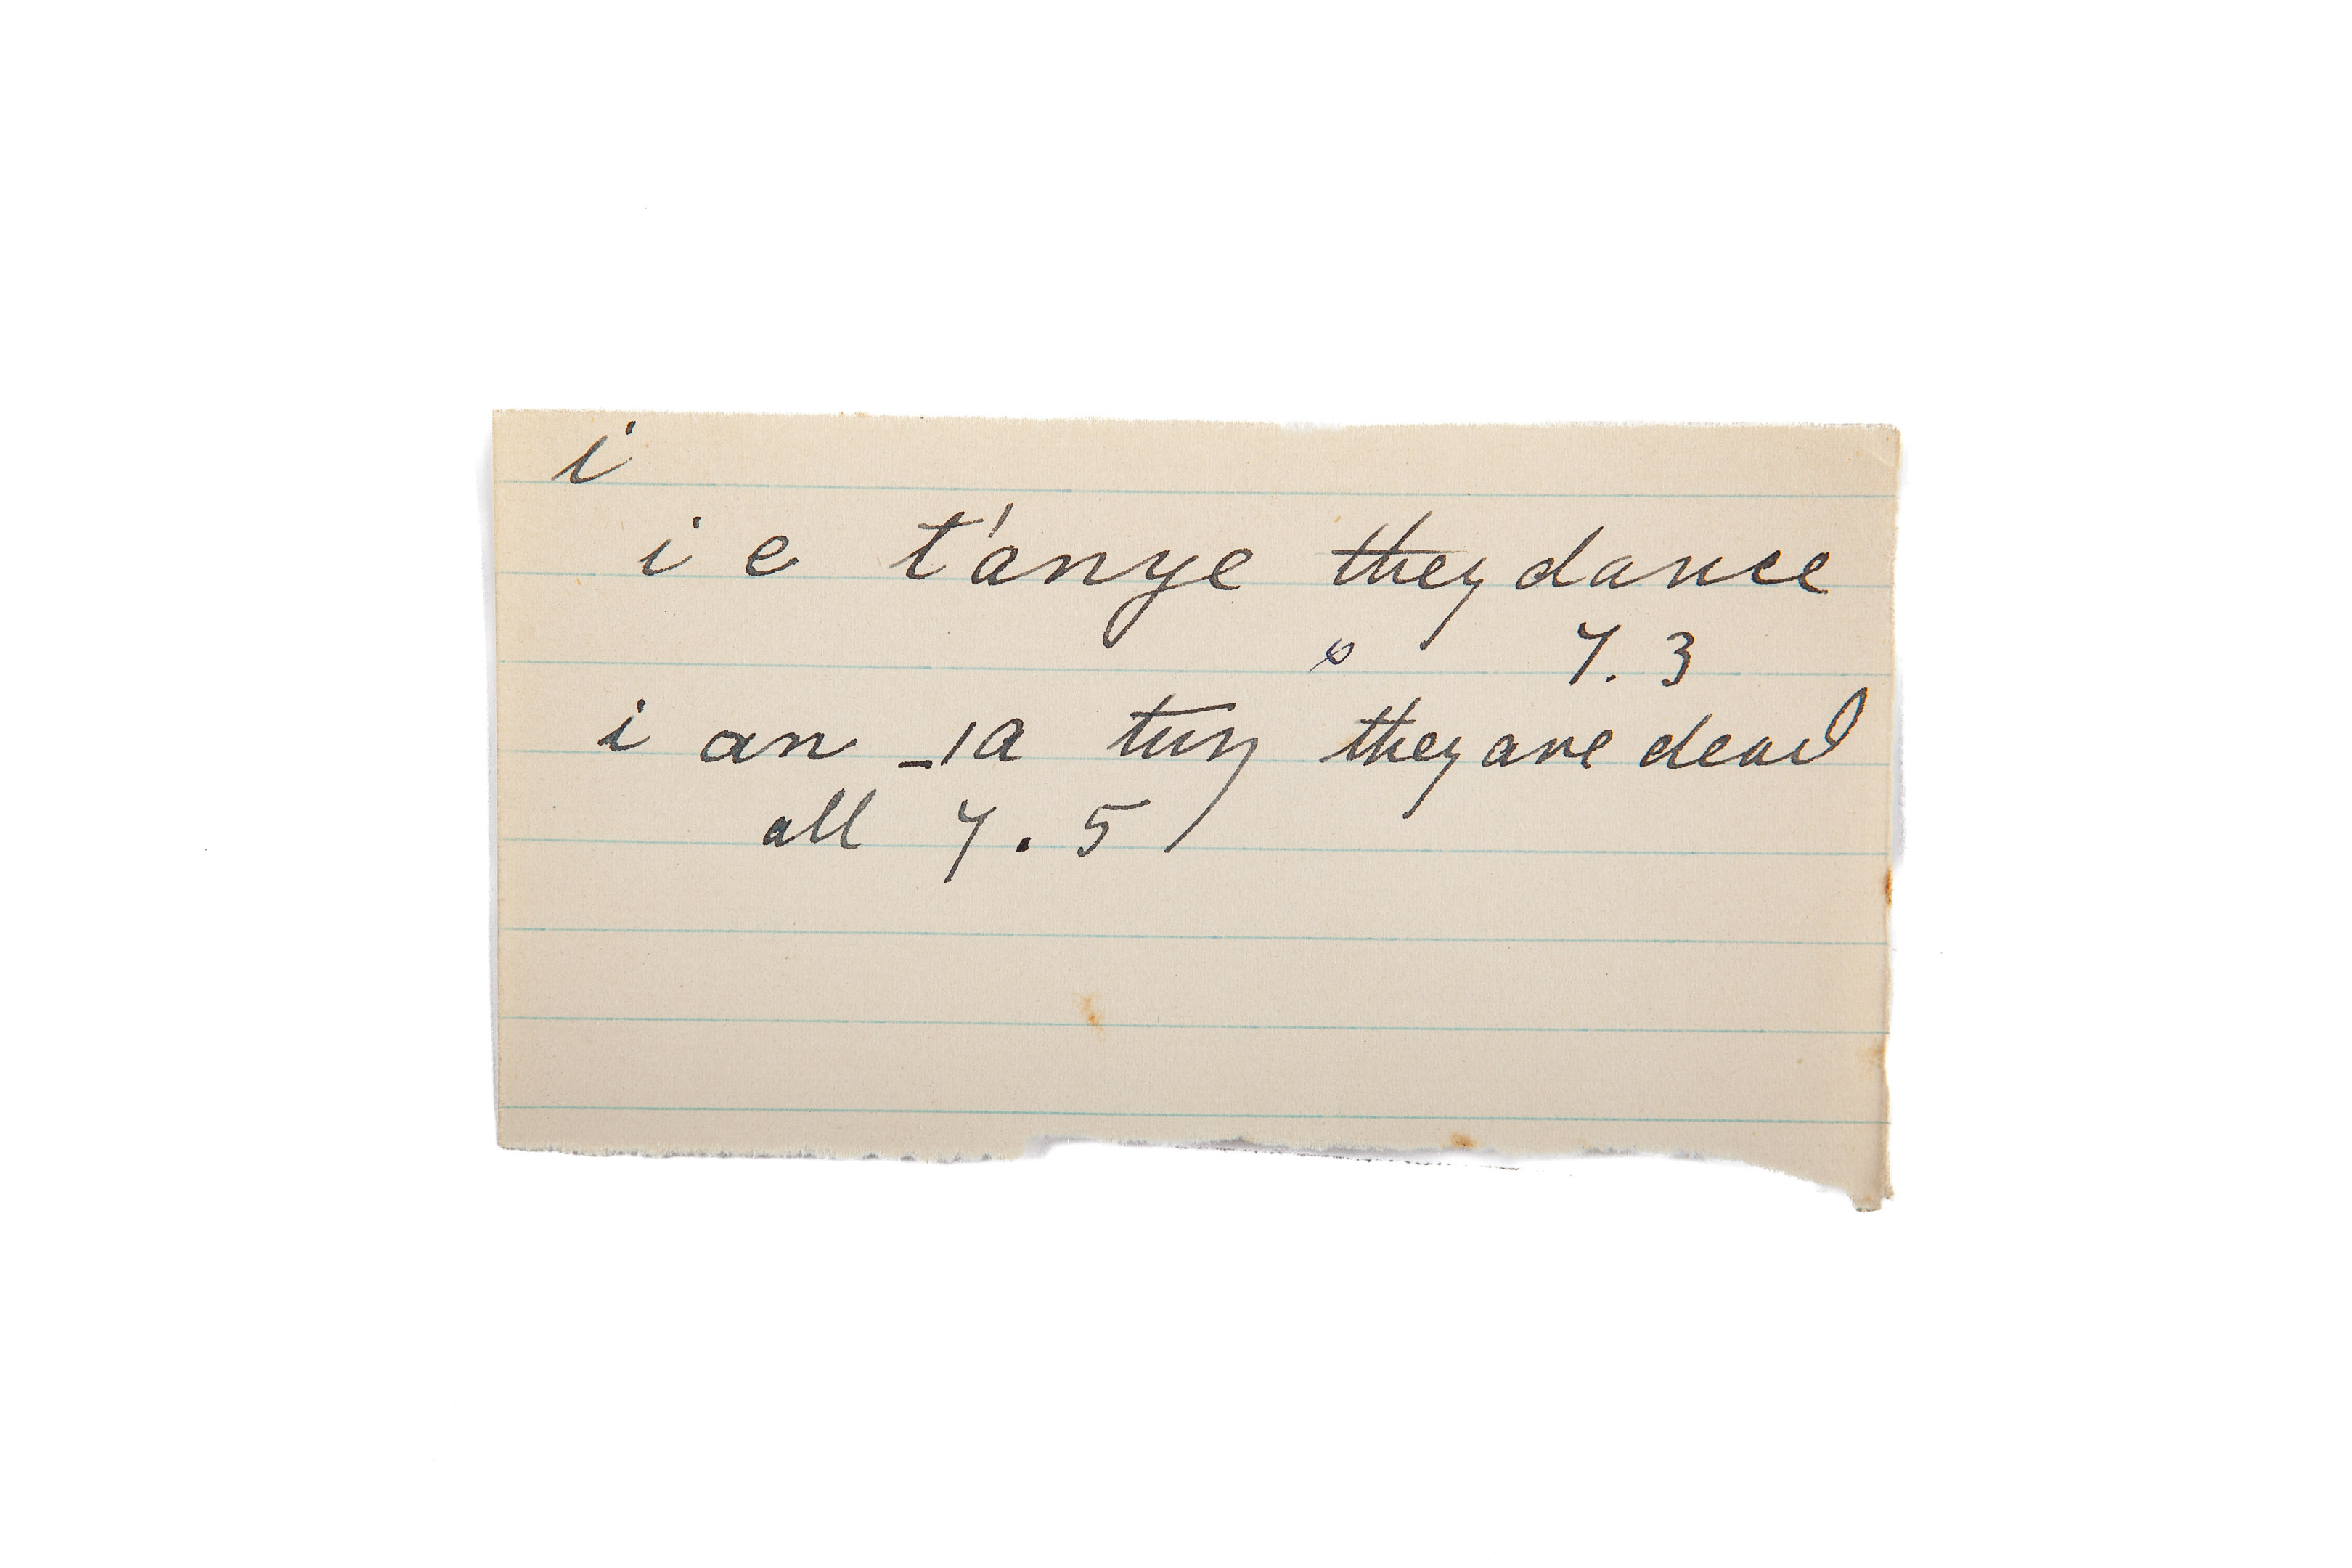 i
i e t'anye they dance
7. 3
i an _Ia tuŋ they are dead
all 7. 5